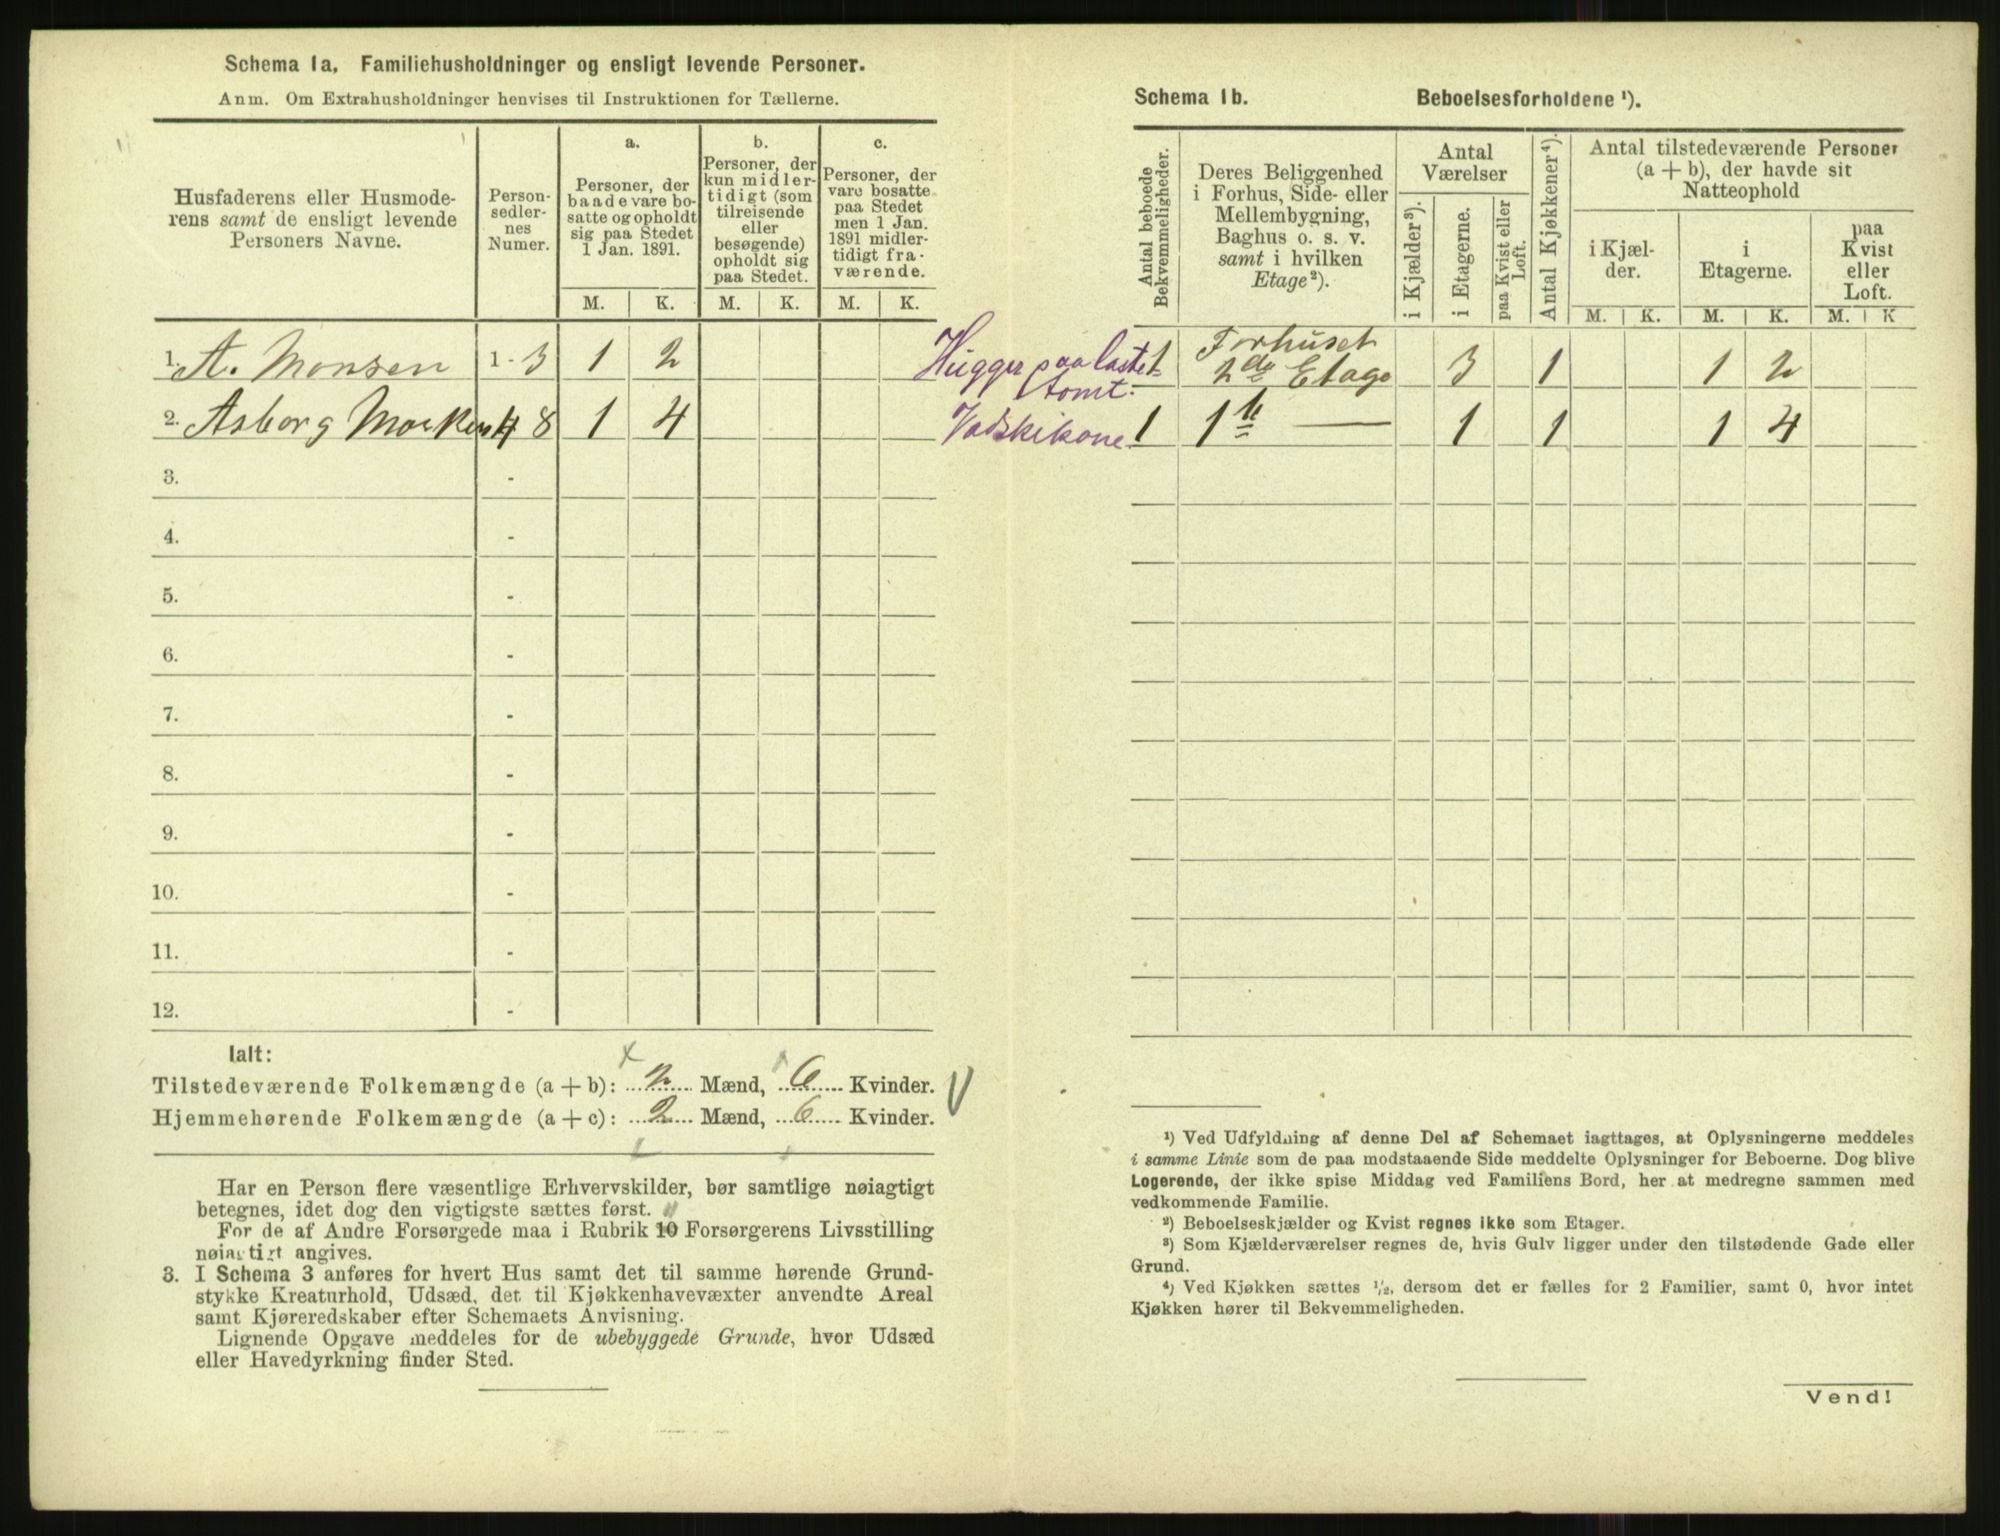 Schema 1a. Familiehusholdninger og ensligt levende Personer.
Anm. Om Extrahusholdninger henvises til Instruktionen for Tællerne.
Husfaderens eller Husmode-
rens samt de ensligt levende
Personers Navne.
Person-
sedler-
nes
Numer.
a.
Personer, der
baade vare bo-
satte og opholdt
sig paa Stedet
1 Jan. 1891.
b.
Personer, der
kun midler-
tidigt (som
tilreisende
eller
besøgende)
opholdt sig
paa Stedet.
c.
Personer, der
vare bosatte
paa Stedet
men 1 Jan.
1891 midler-
tidigt fra-
værende.
M. K. M. K. M. K.
1. A. Monsen 1 - 3 1 2
2. Asborg 4 8 1 4
3. -
4. -
5. -
6. -
7. -
8. -
9. -
10. -
11. -
12. -
Ialt:
Tilstedeværende Folkemængde (a + b): 2 Mænd, 6 Kvinder.
Hjemmehørende Folkemængde (a + c): 2 Mænd, 6 Kvinder.
Har en Person flere væsentlige Erhvervskilder, bør samtlige nøiagtigt
betegnes, idet dog den vigtigste sættes først.
For de af Andre Forsørgede maa i Rubrik 10 Forsørgerens Livsstilling
nøiagtigt angives.
3. I Schema 3 anføres for hvert Hus samt det til samme hørende Grund-
stykke Kreaturhold, Udsæd, det til Kjøkkenhavevæxter anvendte Areal
samt Kjøreredskaber efter Schemaets Anvisning.
Lignende Opgave meddeles for de ubebyggede Grunde, hvor Udsæd
eller Havedyrkning finder Sted.
Schema 1b. Beboelsesforholdene ¹).
Antal beboede
Bekvemmeligheder.
Deres Beliggenhed
i Forhus, Side- eller
Mellembygning,
Baghus o. s. v.
samt i hvilken
Etage²).
Antal
Værelser
i Kjælder³).
i Etagerne.
paa Kvist eller
Loft.
Antal Kjøkkener⁴).
Antal tilstedeværende Personer
(a + b), der havde sit
Natteophold
i Kjæl-
der.
i
Etagerne.
paa
Kvist
eller
Loft.
M. K. M. K. M. K
Hugger paa Laste
tomt.
1 Forhuset
2de Etage 3 1 1 2
Vadskikone 1 1te — 1 1 1 4
¹) Ved Udfyldning af denne Del af Schemaet iagttages, at Oplysningerne meddeles
i samme Linie som de paa modstaaende Side meddelte Oplysninger for Beboerne. Dog blive
Logerende, der ikke spise Middag ved Familiens Bord, her at medregne sammen med
vedkommende Familie.
²) Beboelseskjælder og Kvist regnes ikke som Etager.
³) Som Kjælderværelser regnes de, hvis Gulv ligger under den tilstødende Gade eller
Grund.
⁴) Ved Kjøkken sættes ¹/₂, dersom det er fælles for 2 Familier, samt 0, hvor intet
Kjøkken hører til Bekvemmeligheden.
Vend!